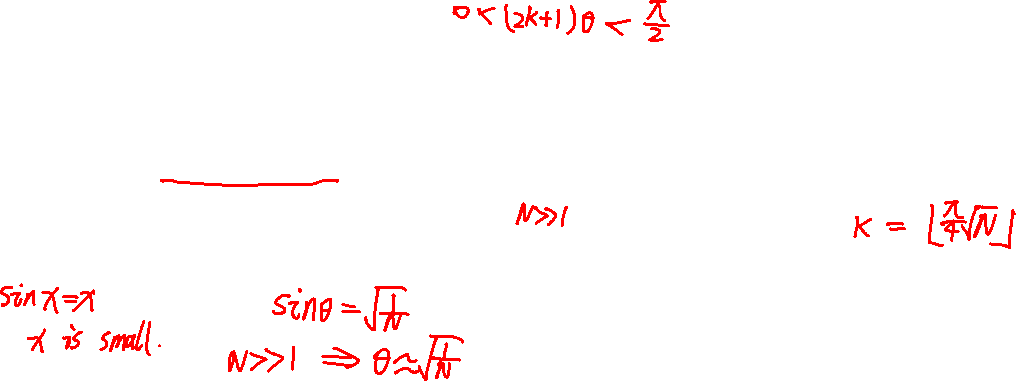 0 < (2k+1)θ < π/2
N≫1
K = ⌊π/4 √N⌋
sin x = x
x is small.
sinθ = √(1/N)
N>>1 ⇒ θ ≈ √(1/N)